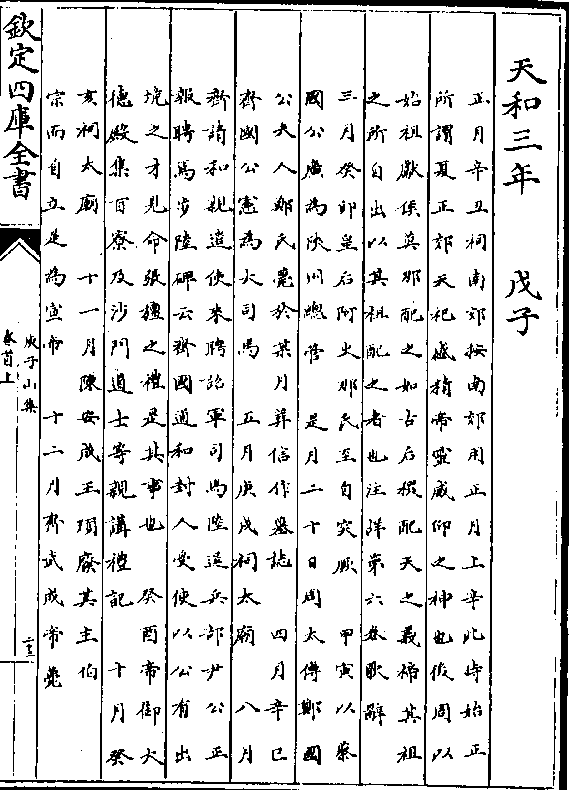 天和三年　戊子
正月辛丑祠南郊按南郊用正月上辛此時始正
所謂夏正郊天祀感精帝靈威仰之神也後周以
始祖獻侯莫那配之如古后稷配天之義禘其祖
之所自出以其祖配之者也注詳第六卷歌辭
三月癸卯皇后阿史那氏至自突厥　甲寅以蔡
國公廣為陜州總管　是月二十日周太傅鄭國
公夫人鄭氏薨於某月葬信作墓誌　四月辛巳
齊國公憲為大司馬　五月庚戌祠太廟　八月
齊請和親遣使來聘詔軍司馬陸逞兵部尹公正
報聘焉步陸碑云齊國通和封人受使以公有出
境之才見命張旜之禮是其事也　癸酉帝御大
德殿集百寮及沙門道士等親講禮記　十月癸
亥祠太廟　十一月陳安成王頊廢其主伯
宗而自立是為宣帝　十二月齊武成帝薨
欽定四庫全書
庾子山集
卷首上